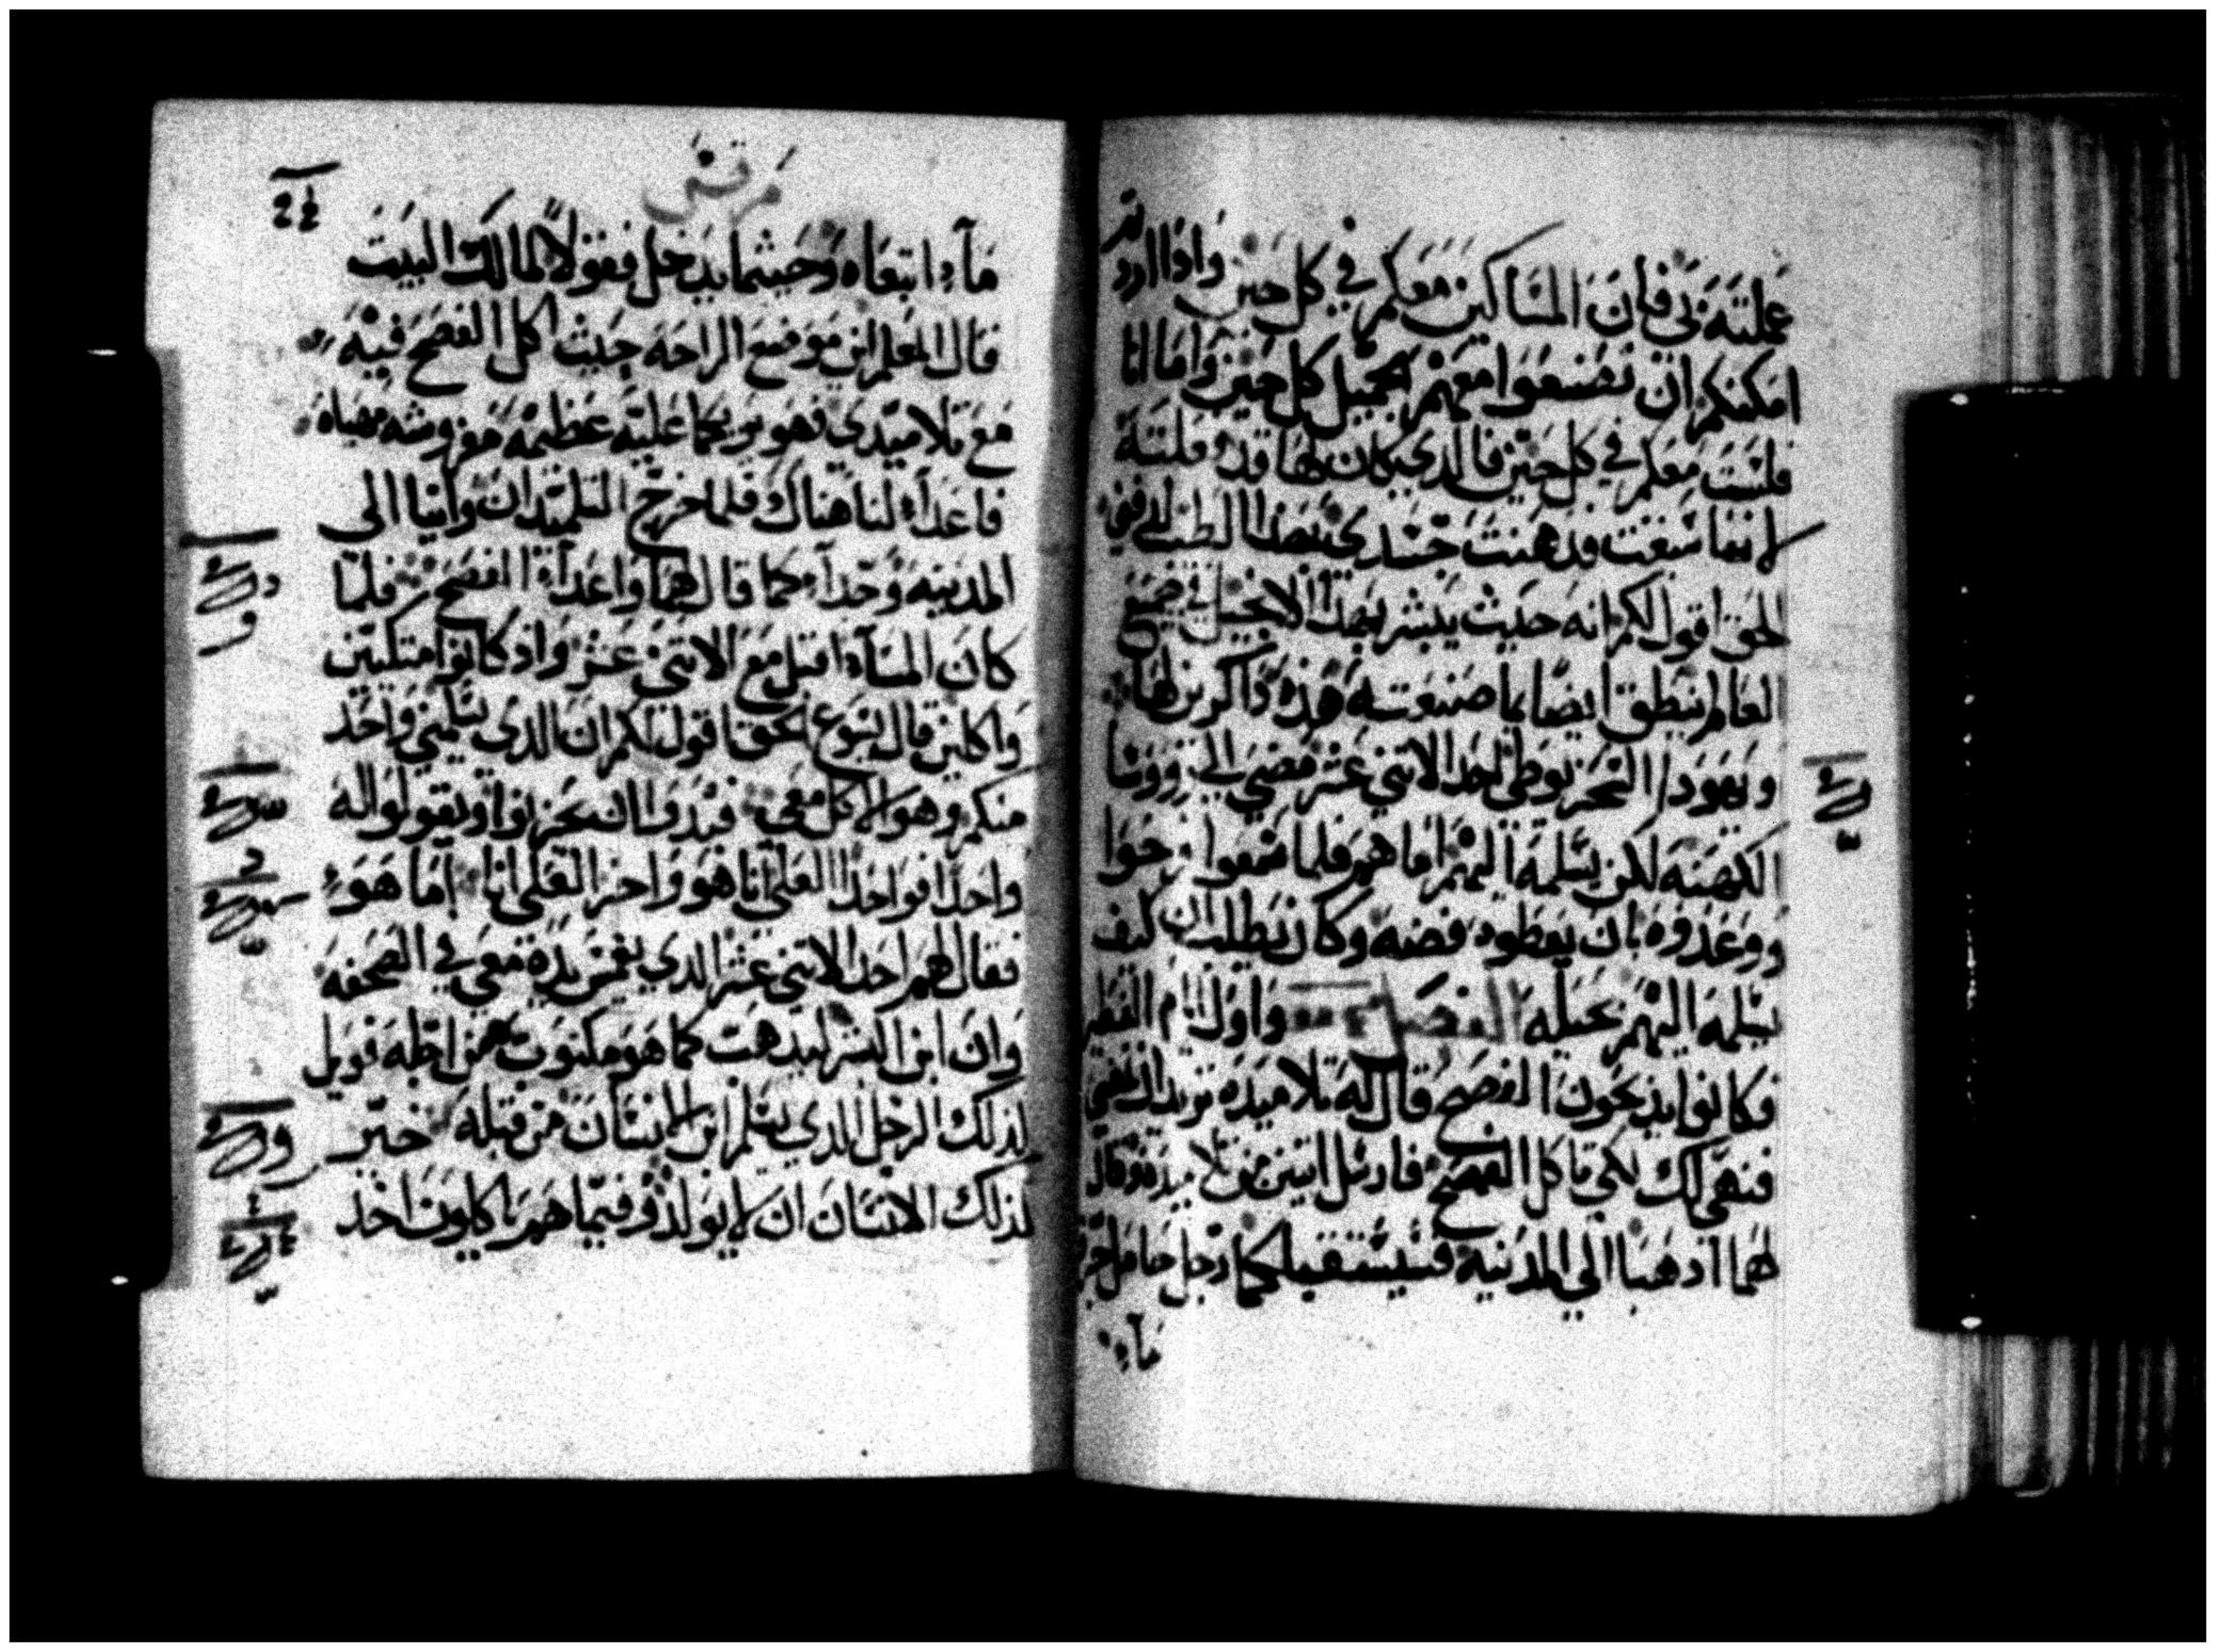 عملته بي فان المساكين معكم في كل حين واذا اردتم
امكنكم ان تصنعوا معهم الجميل كل حين واما انا
فلست معكم في كل حين فالدي كان لها قد فعلته
لانها سبقت ودهنت جسدي بهذا الطيب لدفني
الحق اقول لكم انه حيث يبشر بهدا الانجيل في جميع
العالم ينطق ايضا بما صنعت هذه ذاكرين لها
ويهودا الاسخريوطي احد الاتني عشر مضي الي رووسا
الكهنه لكن يسلمه اليهم اما هم فلما سمعوا فرحوا
ووعدوه بان يعطوه فضه وكان يطلب ان كيف
يسلمه اليهم بحيله وأول ايام الفطير
فكانوا يدبحون الفصح قال له تلاميذه تريد ان نمضي
فنهي لك لكي تاكل الفصح فارسل اتنين من تلاميذه وقال
لهما ادهبا الي المدينه فسيستقبلكما رجل حامل جرة
ماء
مرقس
مآء اتبعاه وحيثما يدخل فقولا لمالك البيت
قال المعلم اين موضع الراحه حيث اكل الفصح فيه
مع تلاميدي فهو يريكما عليه عظيمه مفروشه مهياه
فاعدا لنا هناك فلما خرج التلميدان واتيا الى
المدينه وجدا كما قال لهما واعدا الفصح فلما
كان المسآء اقبل مع الاتني عشر واد كانوا متكيين
واكلين قال يسوع الحق اقول لكم ان الدى يسلمني واحد
منكم وهو الاكل معي فبدوا ان يحزنوا ويقولوا له
واحدا فواحدا العلى انا هو واخر العلى انا اما هو
فقال لهم احد الاتني عشر الدي يغمس يده معي في الصحفه
وان ابن البشر ليدهب كما هو مكتوب من اجله فويل
لذلك الرجل الدي يسلم ابن الانسان من قبله خير
لذلك الانسان ان لا يولد وفيما هم ياكلون اخد